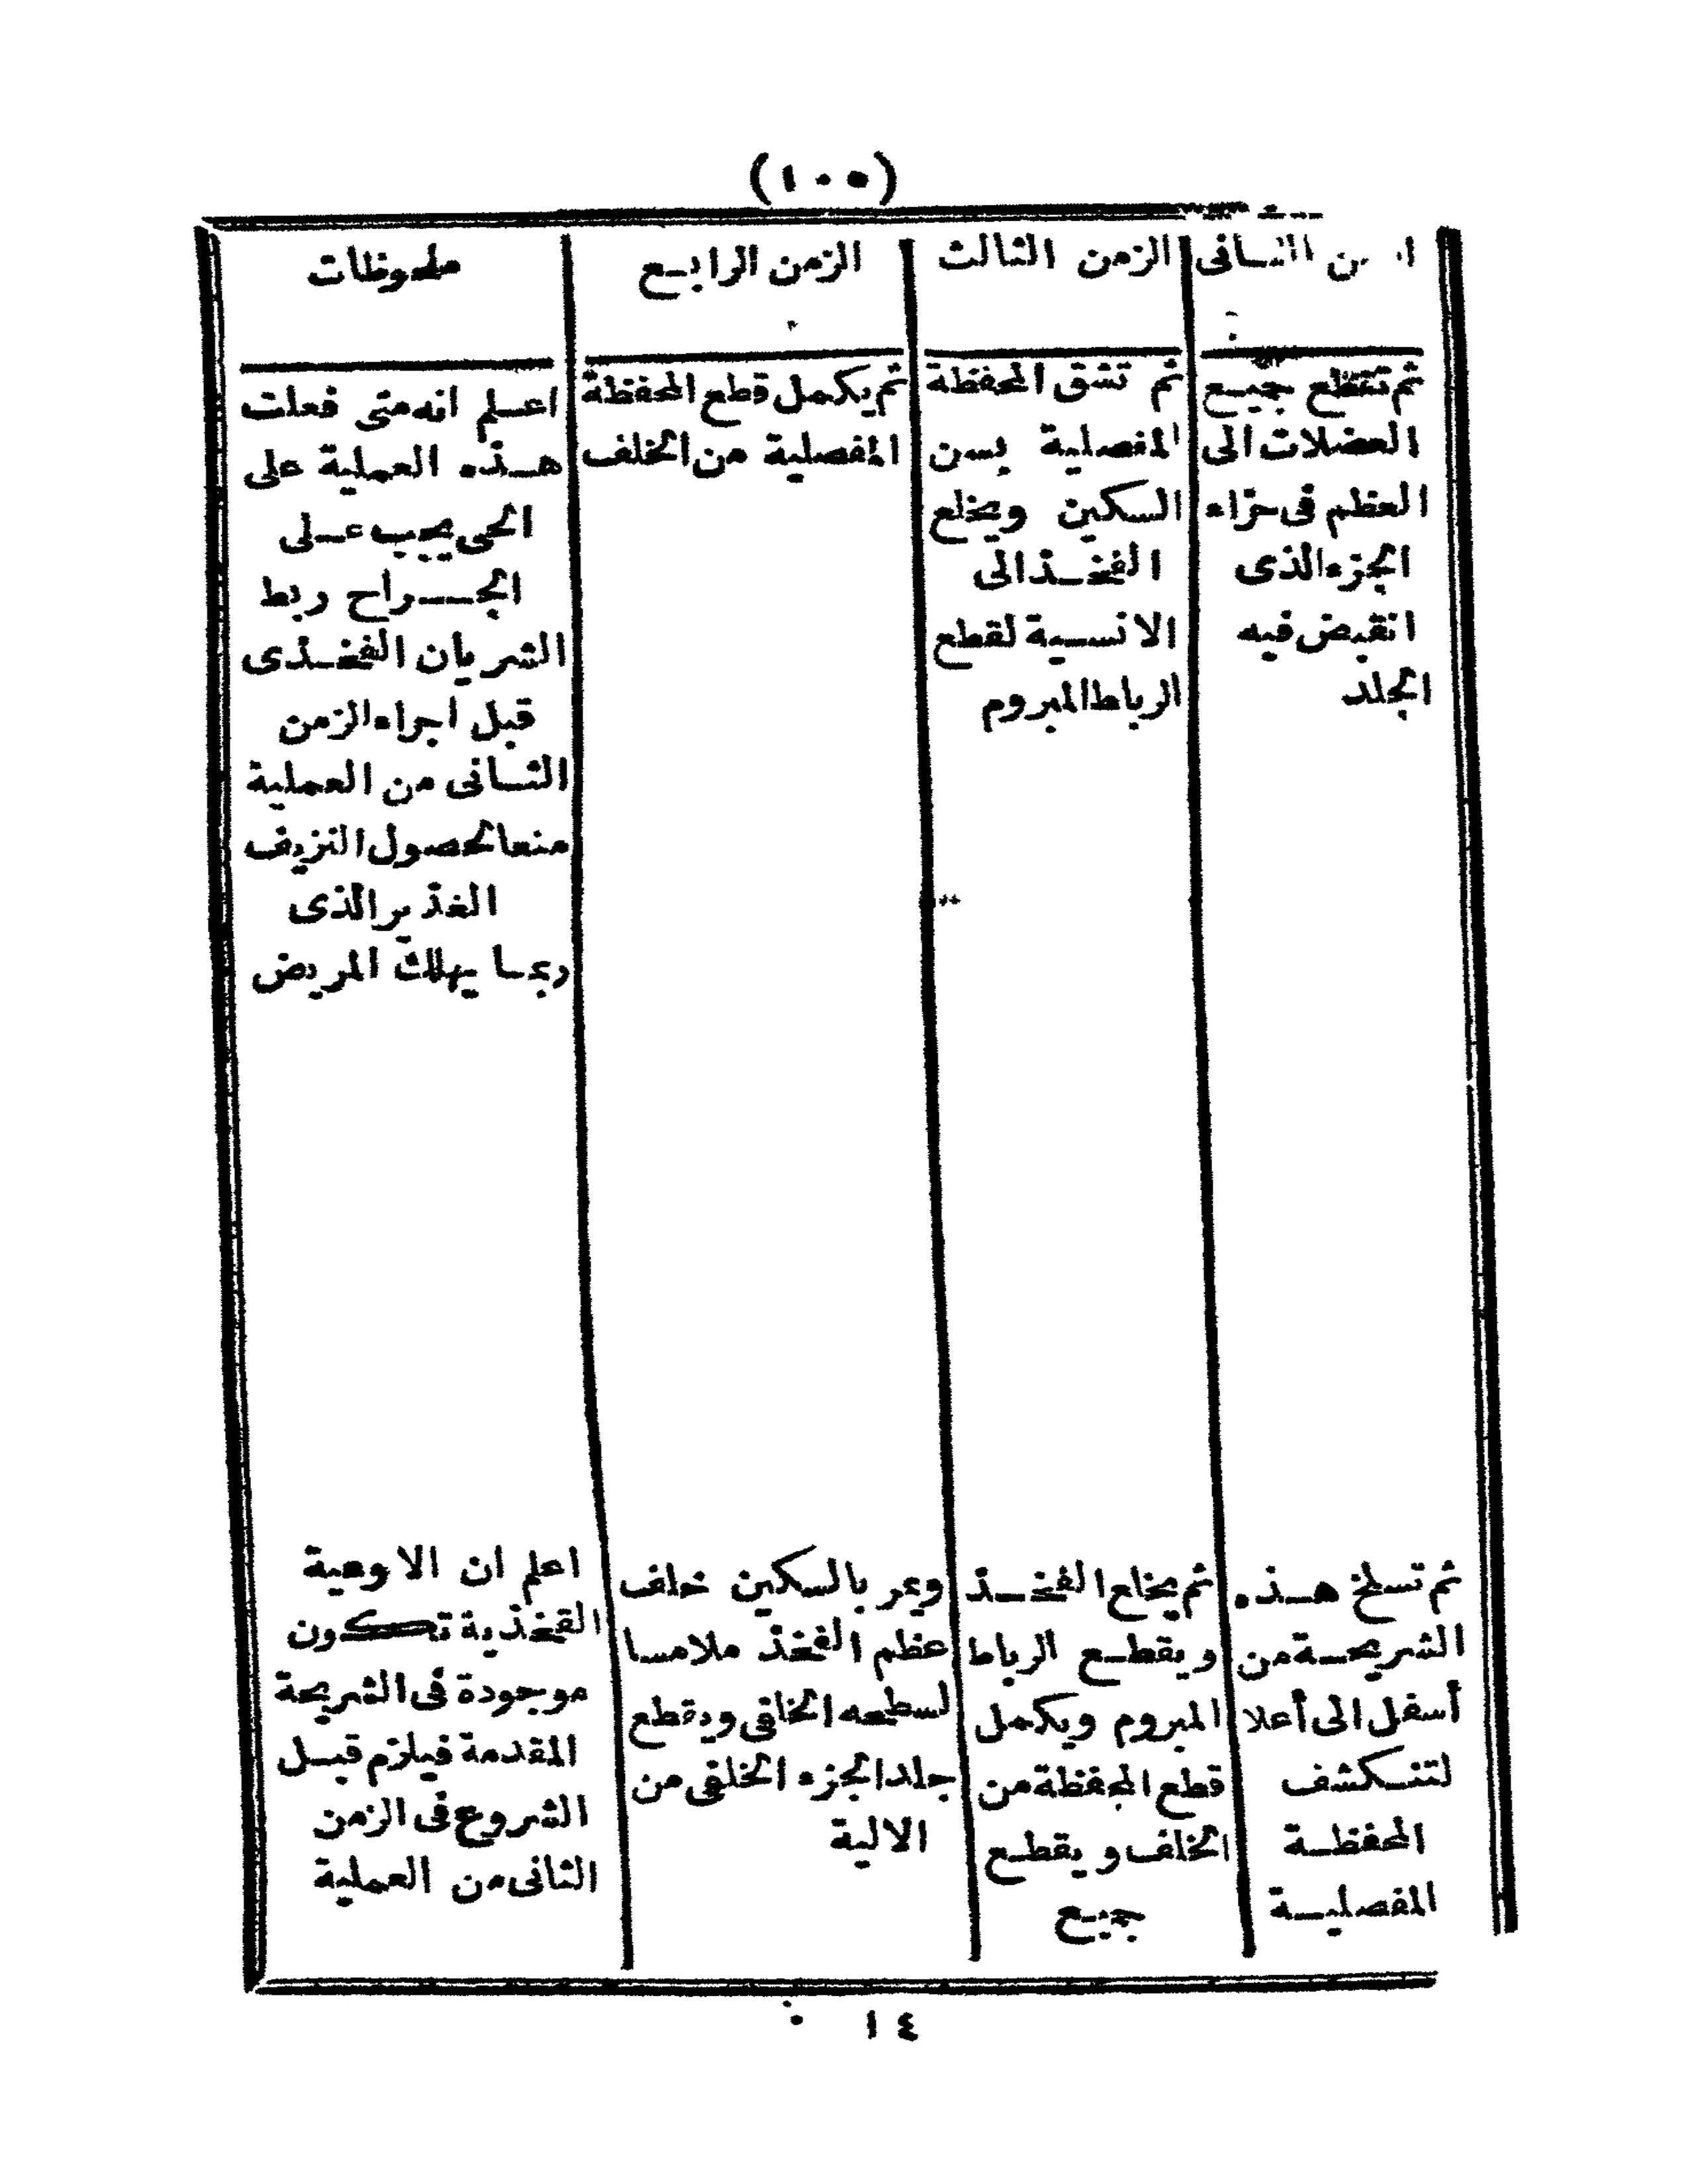 (١٠٥)
الزمن الثانى
ثم تقطع جميع
العضلات الى
العظم فى حزاء
الجزء الذى
انقبض فيه
الجلد
الزمن الثالث
ثم تشق المحفظة
المفصلية بسن
السكين ويخلع
الفخذ الى
الانسية لقطع
الرباط المبروم
الزمن الرابع
ثم يكمل قطع المحفظة
المفصلية من الخلف
ملحوظات
اعلم انه متى فعلت
هذه العملية على
الحى يجب على
الجراح ربط
الشريان الفخذى
قبل اجراء الزمن
الثانى من العملية
منعا لحصول النزيف
الغذير الذى
ربما يهلك المريض
ثم تسلخ هذه
الشريحة من
أسفل الى أعلا
لتنكشف
المحفظة
المفصلية
ثم يخلع الفخذ
ويقطع الرباط
المبروم ويكمل
قطع المحفظة من
الخلف ويقطع
جميع
ويمر بالسكين خلف
عظم الفخذ ملامسا
لسطحه الخلفى ويقطع
جلد الجزء الخلفى من
الالية
اعلم ان الاوعية
الفخذية تكون
موجودة فى الشريحة
المقدمة فيلزم قبل
الشروع فى الزمن
الثانى من العملية
١٤